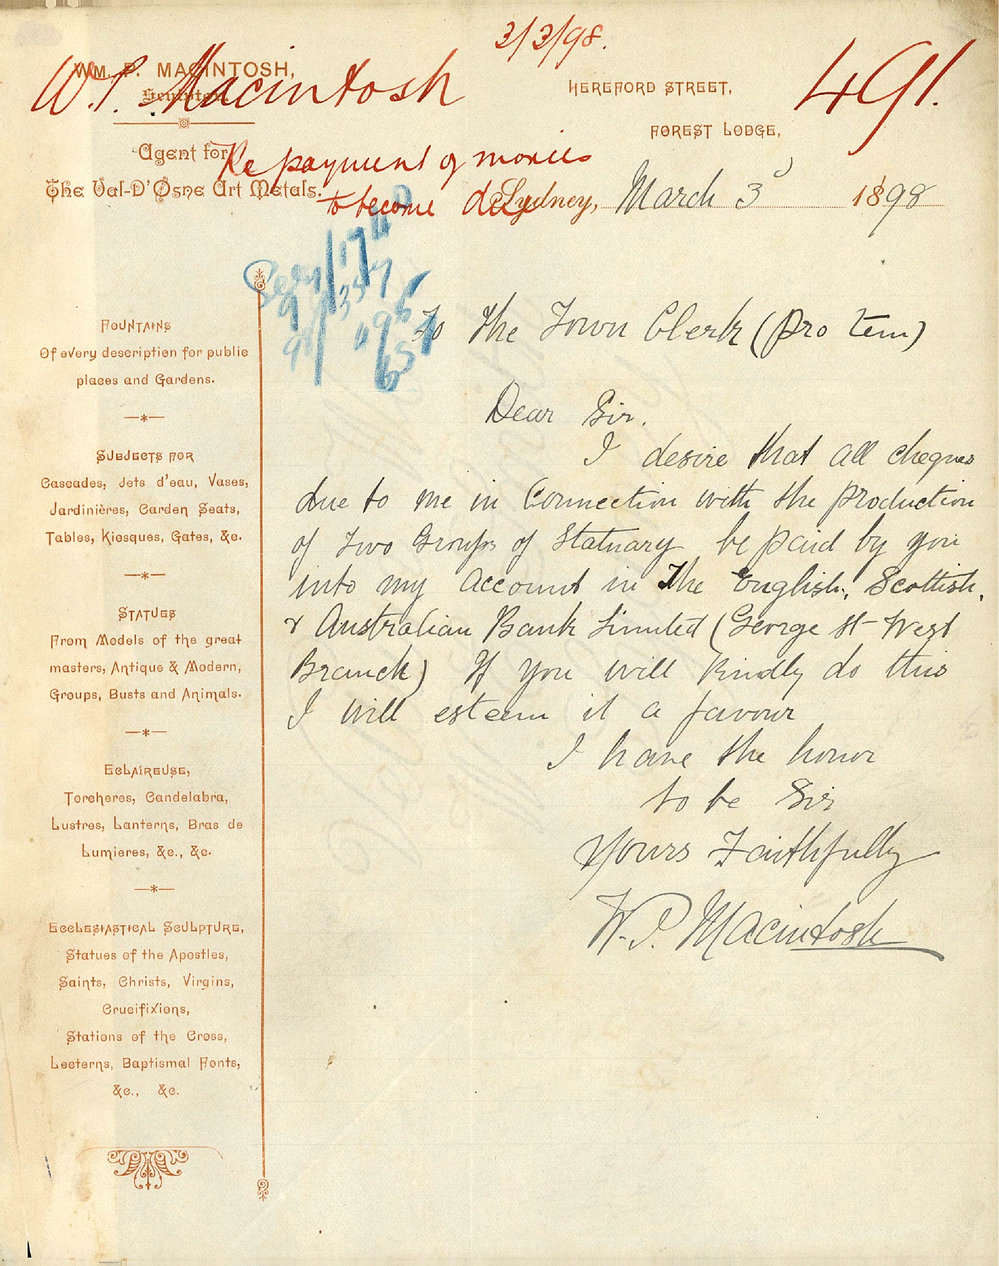 3/3/98.
WM. P. MACINTOSH,
Sculptor
W. P. Macintosh
HEREFORD STREET,
491.
FOREST LODGE,
Agent for
Re payment of monies
The Val-D'Osne Art Metals.
to become due
Sydney, March 3d 1898
To The Town Clerk (Pro Tem)
Dear Sir.
I desire that all cheques
due to me in Connection with the production
of Two Groups of Statuary be paid by you
into my account in The English, Scottish,
& Australian Bank Limited (George St West
Branch) If you will kindly do this
I will esteem it a favour
I have the honor
to be Sir
Yours Faithfully
W. P. Macintosh
FOUNTAINS
Of every description for public
places and Gardens.
SUBJECTS FOR
Cascades, Jets d'eau, Vases,
Jardinières, Garden Seats,
Tables, Kiosques, Gates, &c.
STATUES
From Models of the great
masters, Antique & Modern,
Groups, Busts and Animals.
ECLAIREUSE,
Torcheres, Candelabra,
Lustres, Lanterns, Bras de
Lumieres, &c., &c.
ECCLESIASTICAL SCULPTURE,
Statues of the Apostles,
Saints, Christs, Virgins,
Crucifixions,
Stations of the Cross,
Lecterns, Baptismal Fonts,
&c., &c.